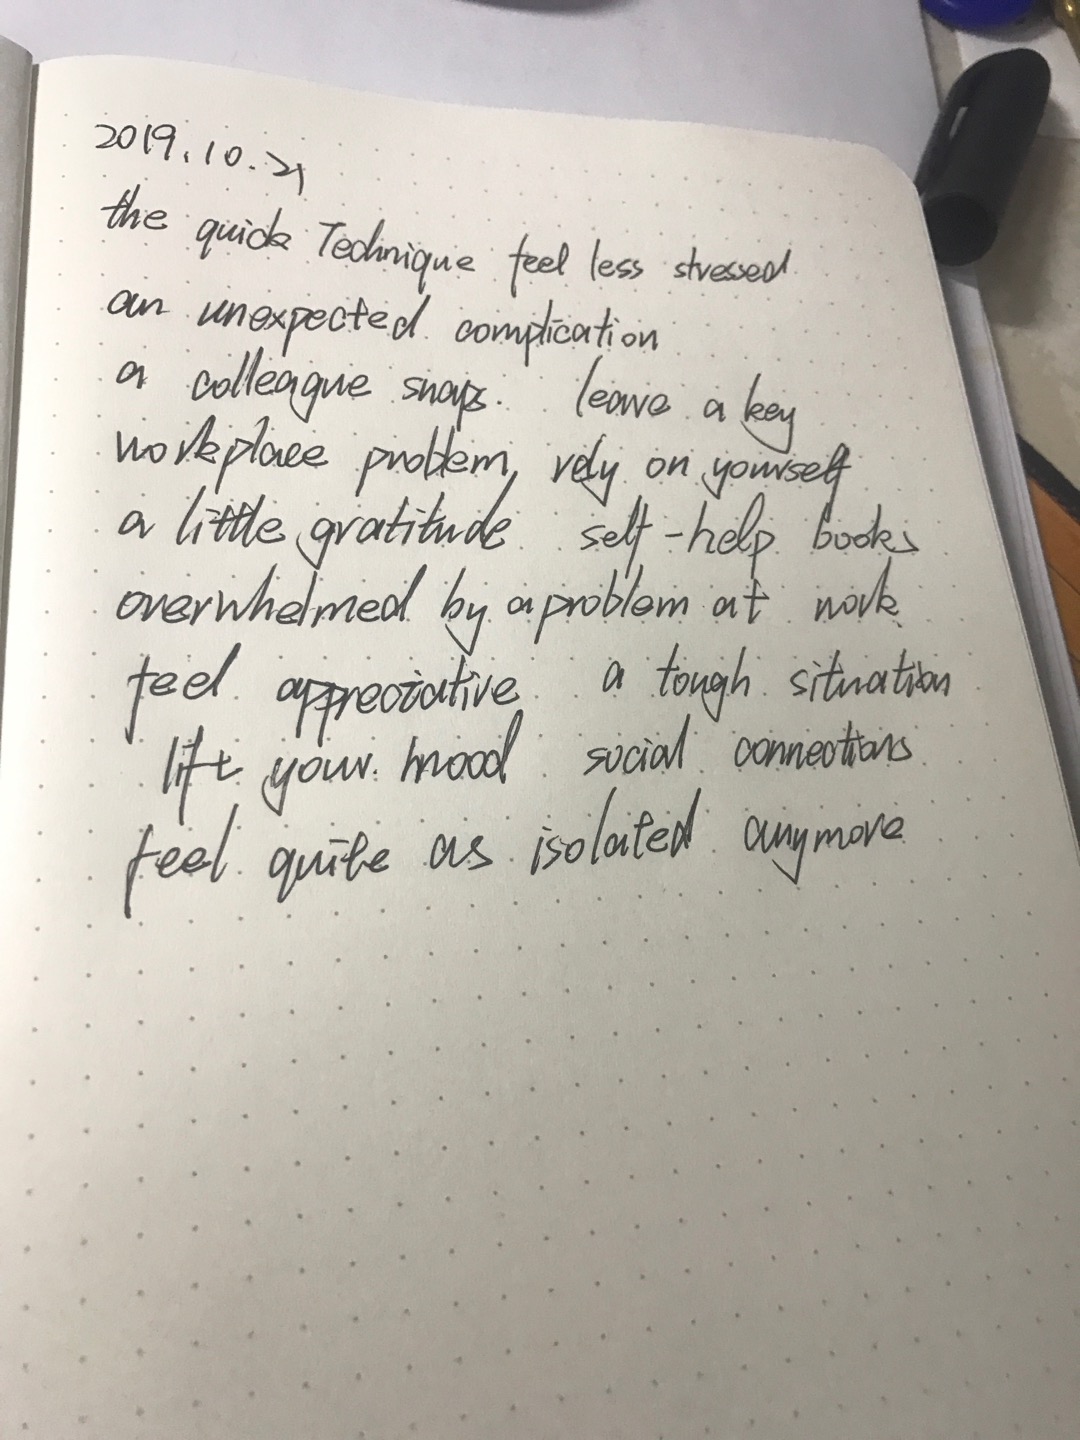 2019.10.21
the quick Technique feel less stressed
an unexpected complication
a colleague snaps. leave a key
workplace problem, rely on yourself
a little gratitude self-help books
overwhelmed by a problem at work
feel appreciative a tough situation
lift your mood social connections
feel quite as isolated anymore